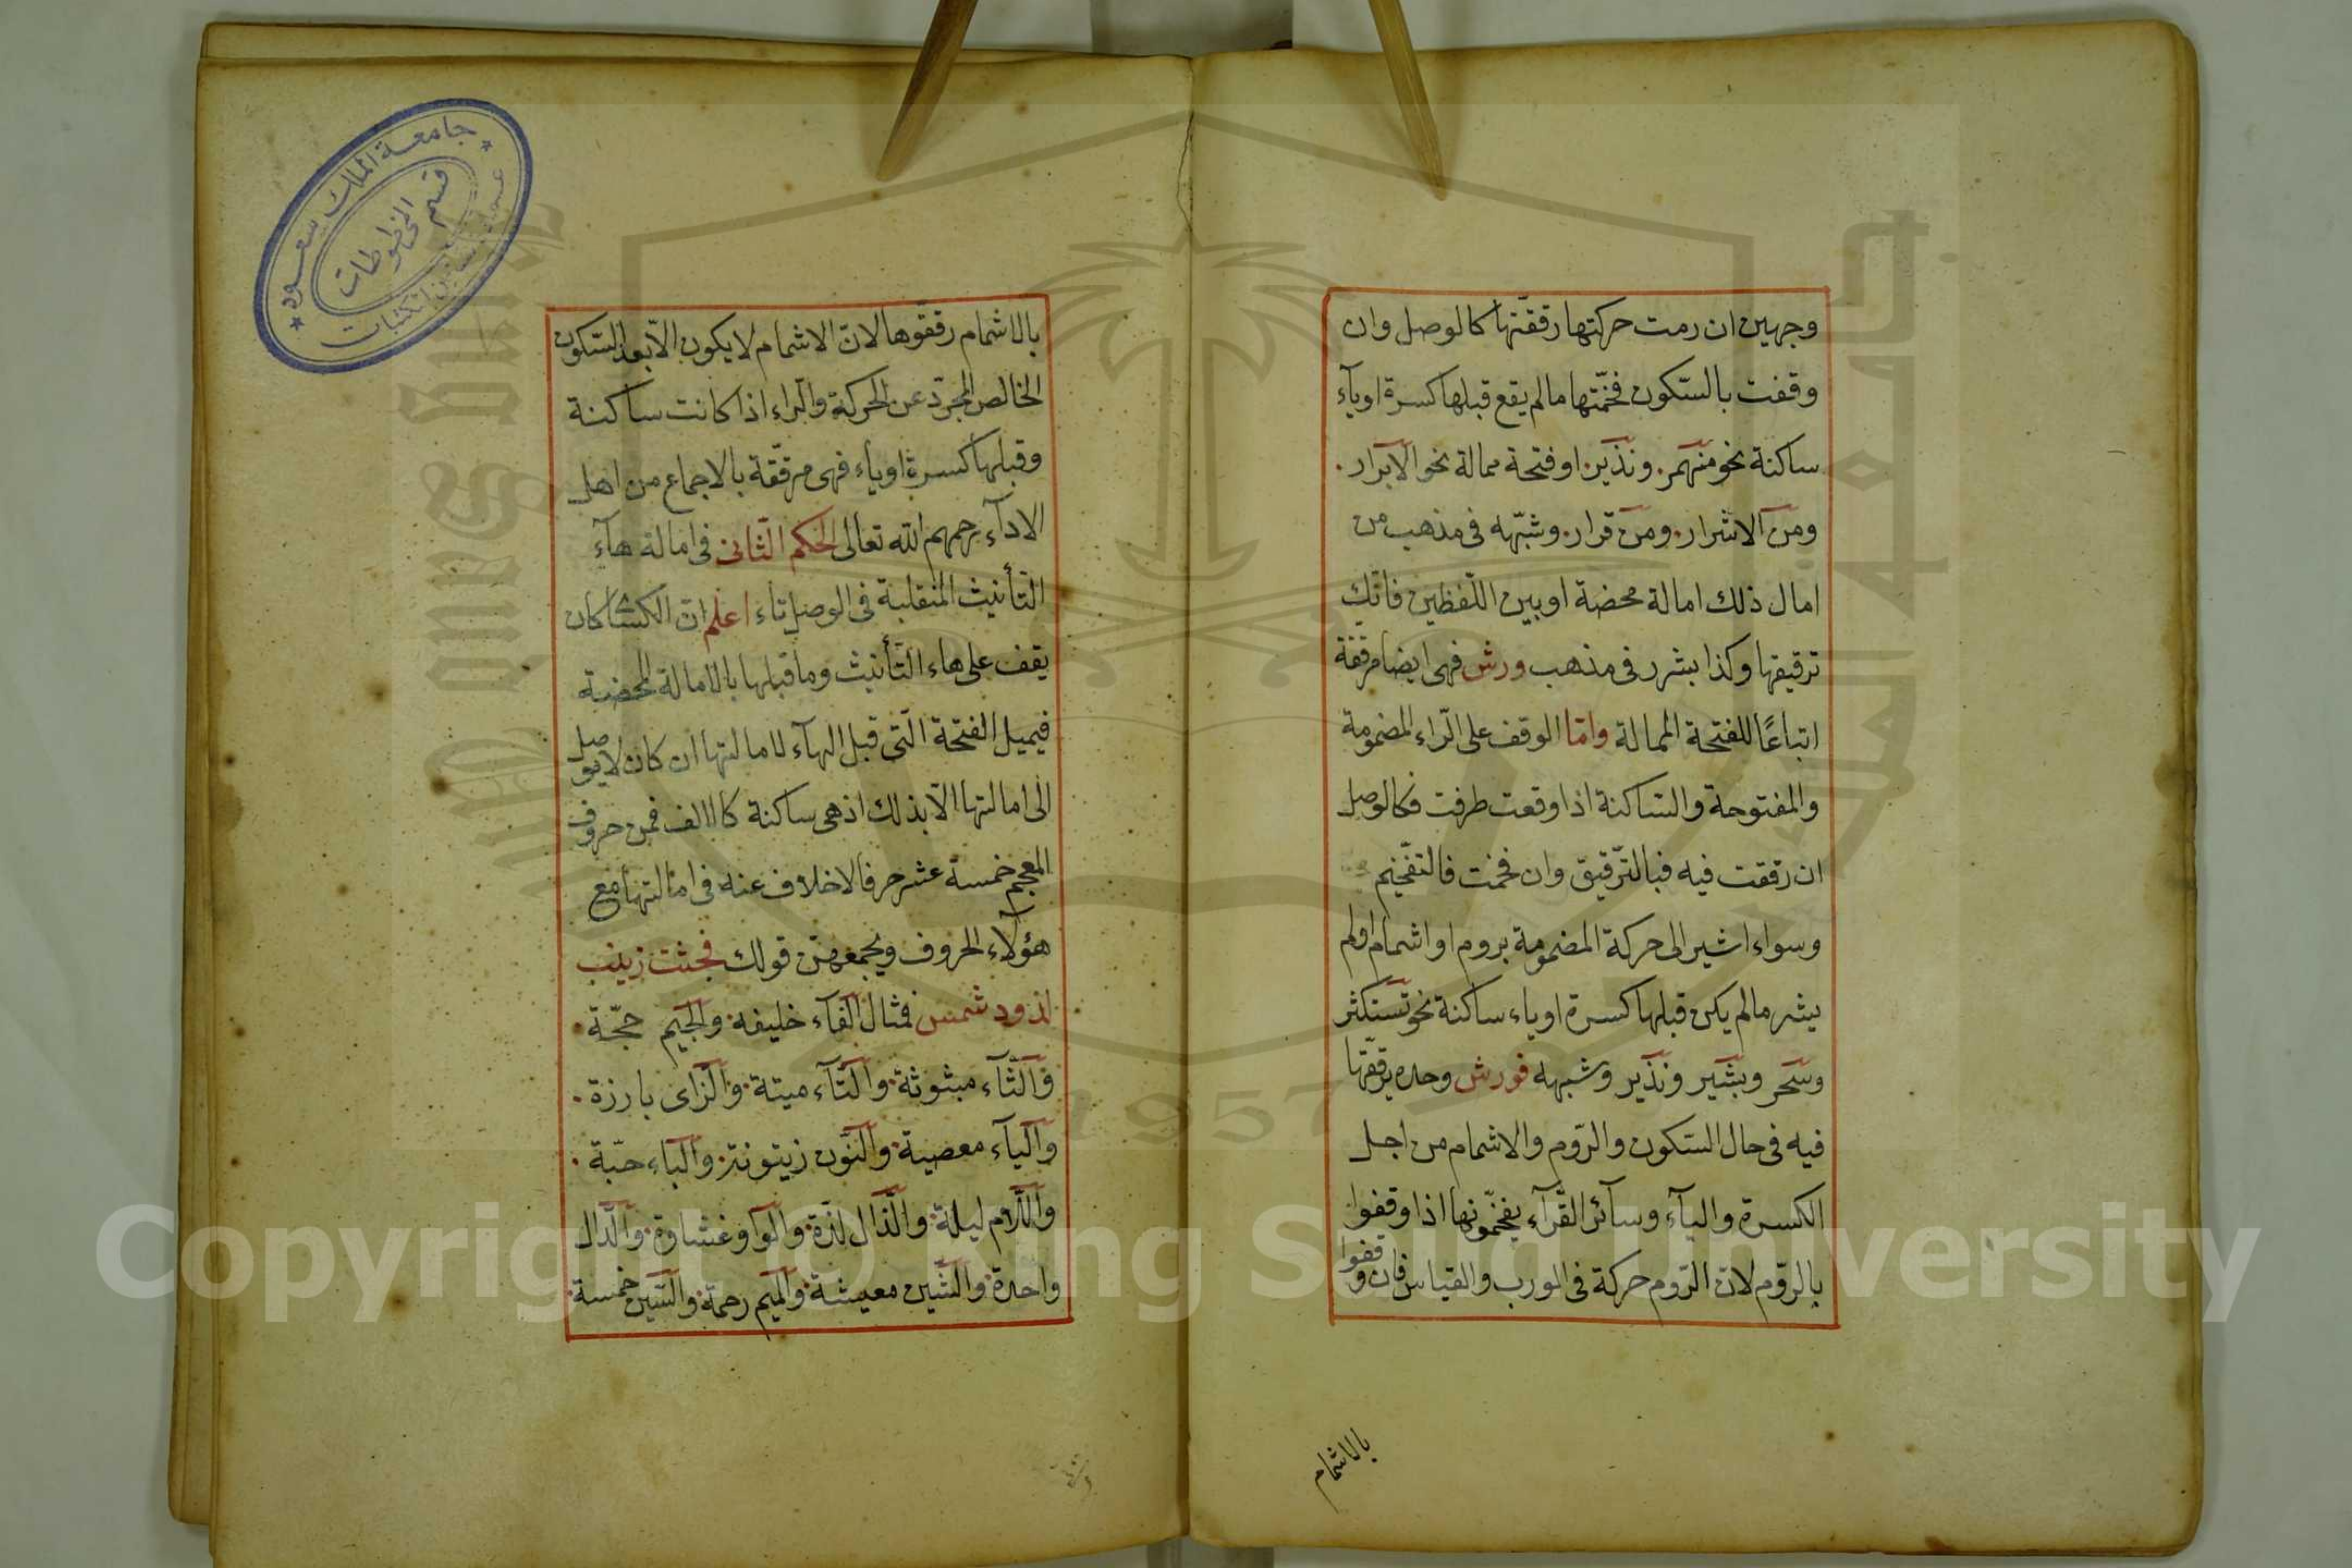 وجهين ان رمت حركتها رققتها كالوصل وان
وقفت بالسّكون فخّمتها مالم يقع قبلها كسرة اوياء
ساكنة نحو منهمر. ونذير. اوفتحة ممالة نحو الابرار.
ومن الاشرار. ومن قرار. وشبّهه فى مذهب من
امال ذلك امالة محضة اوبين اللّفظين فانّك
ترقيقها وكذا بشرر فى مذهب ورش فهى ايضا مرققة
اتباعًا للفتحة الممالة وامّا الوقف على الرّاء المضمومة
والمفتوحة والساكنة اذا وقعت طرفت فكالوصل
ان رققت فيه فبالتّرقيق وان فخمت فالتفّخيم
وسواء اشير الى حركة المضمومة بروم او اشمام اولم
يشر مالم يكن قبلها كسرة اوياء ساكنة نحو تستكثر
وسحر وبشير ونذير وشبهه فورش وحده يرقّقها
فيه فى حال السّكون والرّوم والاشمام من اجل
الكسرة والياء وسائر القرّاء يفخّمونها اذا وقفوا
بالروّم لان الرّوم حركة فى الورب والقياس فان وقفوا
بالاشمام
بالاشمام رققوها لانّ الاشمام لايكون الاّ بعد السّكون
الخالص المجرّد عن الحركة والرّاء اذا كانت ساكنة
وقبلها كسرة اوياء فهى مرقّقة بالاجماع من اهل
الاداء رحمهم الله تعالى الحكم الثّانى فى امالة هاء
التّأنيث المنقلبة فى الوصل تاء اعلم انّ الكسائى كان
يقف على هاء التّأنيث وما قبلها بالامالة المحضية
فيميل الفتحة الّتى قبل الهاء لامالتها ان كان لايوصل
الى امالتها الاّ بذلك اذ هى ساكنة كاالالف فمن حروف
المعجم خمسة عشر حرفا لاخلاف عنه فى امالتها مع
هؤلاء الحروف ويجمعهنّ قولك فجثت زينب
لذود شمس فمثال الفاء خليفه. والجيم حجّة.
والثّاء مبثوثة. والتّاء ميتة. والزّاى بارزة.
والياء معصية. والنّون زيتونة. والباء حبّة.
واللّام ليلة. والذّال لذّة. والواو غشاوة. والدّال
واحدة. والشّين معيشة. والميم رحمة. والسّين خمسة.
جامعة الملك سعود
قسم المخطوطات
Copyright © King Saud University
1957